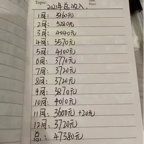 2021年总收入
1月: 3260元
2月: 5220元
3月: 4440元
4月: 5570元
5月: 4100元
6月: 3770元
7月: 3720元
8月: 3720元
9月: 3270元
10月: 4010元
11月: 3600元+20元
12月: 3720元
总: 47580元